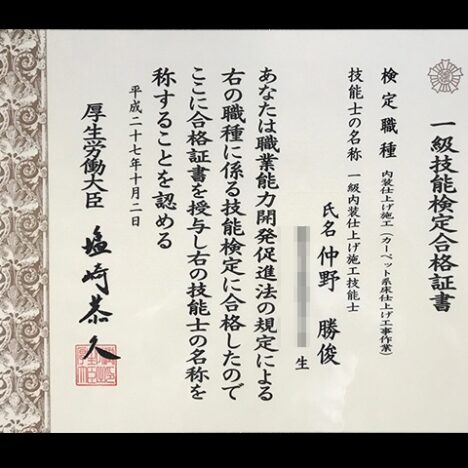 一級技能検定合格証書
検定職種 内装仕上げ施工(カーペット系床仕上げ工事作業)
技能士の名称 一級内装仕上げ施工技能士
氏名 仲野 勝俊
生
あなたは職業能力開発促進法の規定による
右の職種に係る技能検定に合格したので
ここに合格証書を授与し右の技能士の名称を
称することを認める
平成二十七年十月二日
厚生労働大臣 塩崎恭久